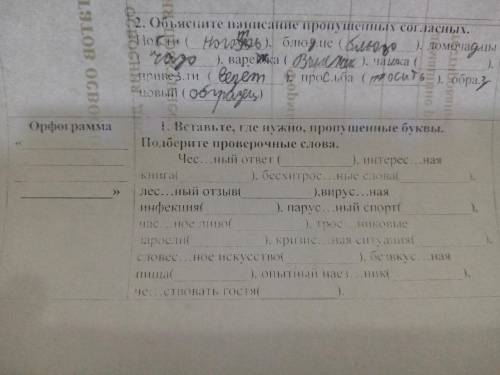 2. Объясните написание пропущенных согласных.
Но г ти ( ноготь ), блю д це ( блюдо ), домоча д цы
( чадо ), варе ж ка ( ), ча ш ка ( ),
приве з ли ( везет ), про с ьба ( просить ), обра з
цовый ( образец )
Орфограмма
«
»
1. Вставьте, где нужно, пропущенные буквы.
Подберите проверочные слова.
Чес...ный ответ ( ), интерес...ная
книга( ), бесхитрос...ные слова( ),
лес...ный отзыв( ),вирус...ная
инфекция( ), парус...ный спорт( ),
час...ное лицо( ), трос...никовые
заросли( ), кризис...ная ситуация( ),
словес...ное искусство( ), безвкус...ная
пища( ), опытный наез...ник( ),
че...ствовать гостя( ).